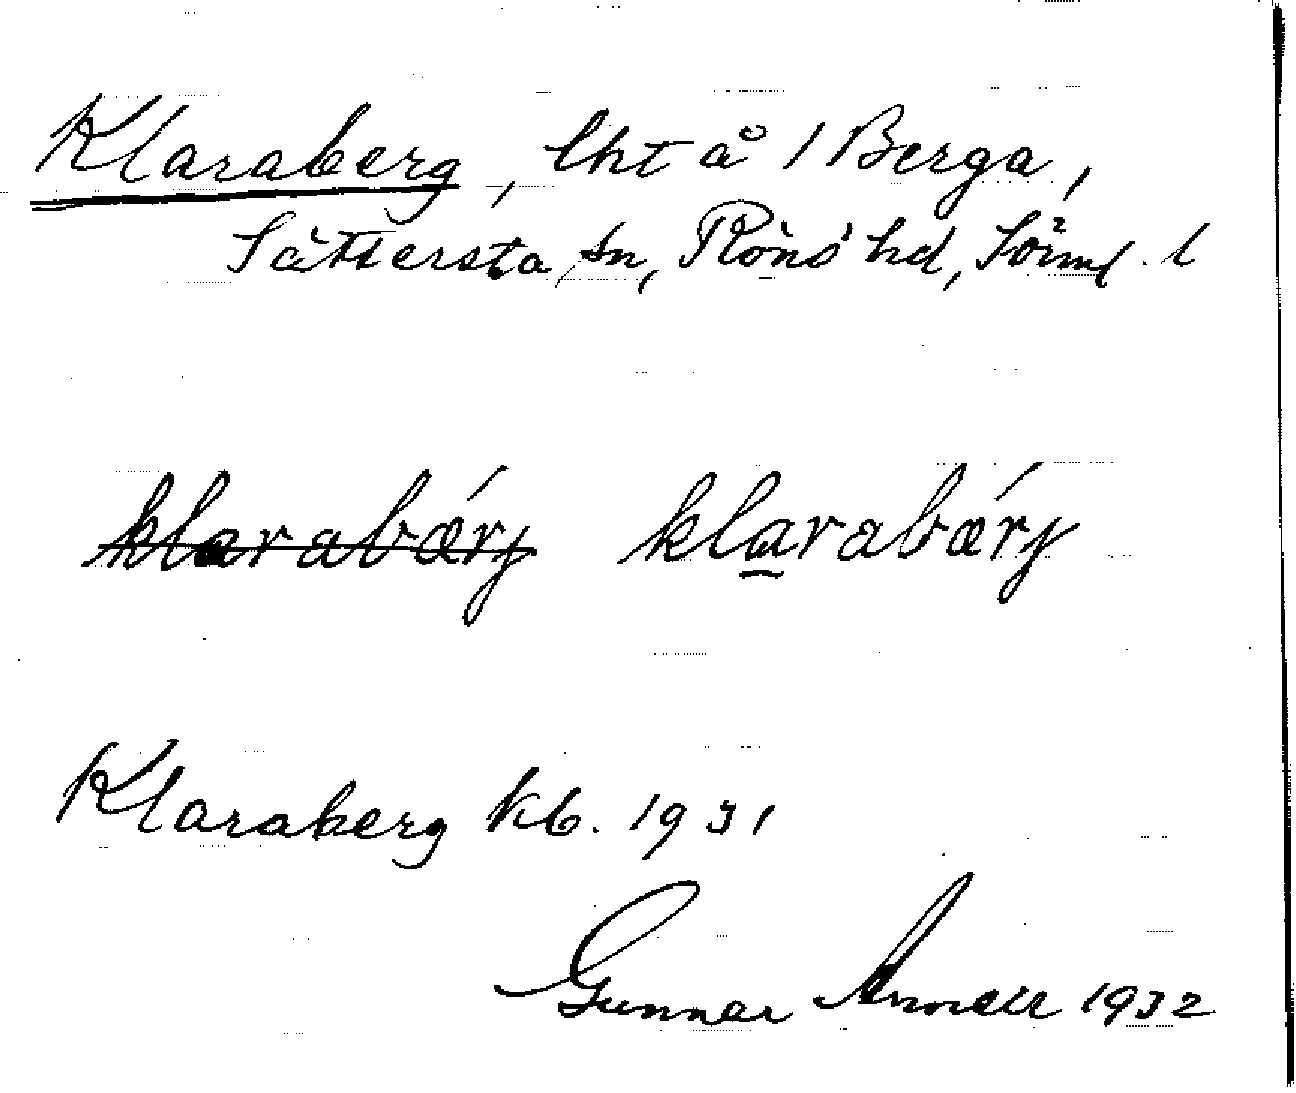 Klaraberg, lht å 1 Berga,
Sättersta sn, Rönö hd, Söml. l
klarabærj klarabærj
Klaraberg kb. 1931
Gunnar 1932